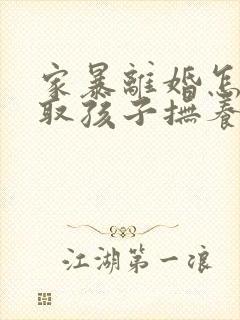 家暴離婚怎
取孩子撫養
江湖第一浪